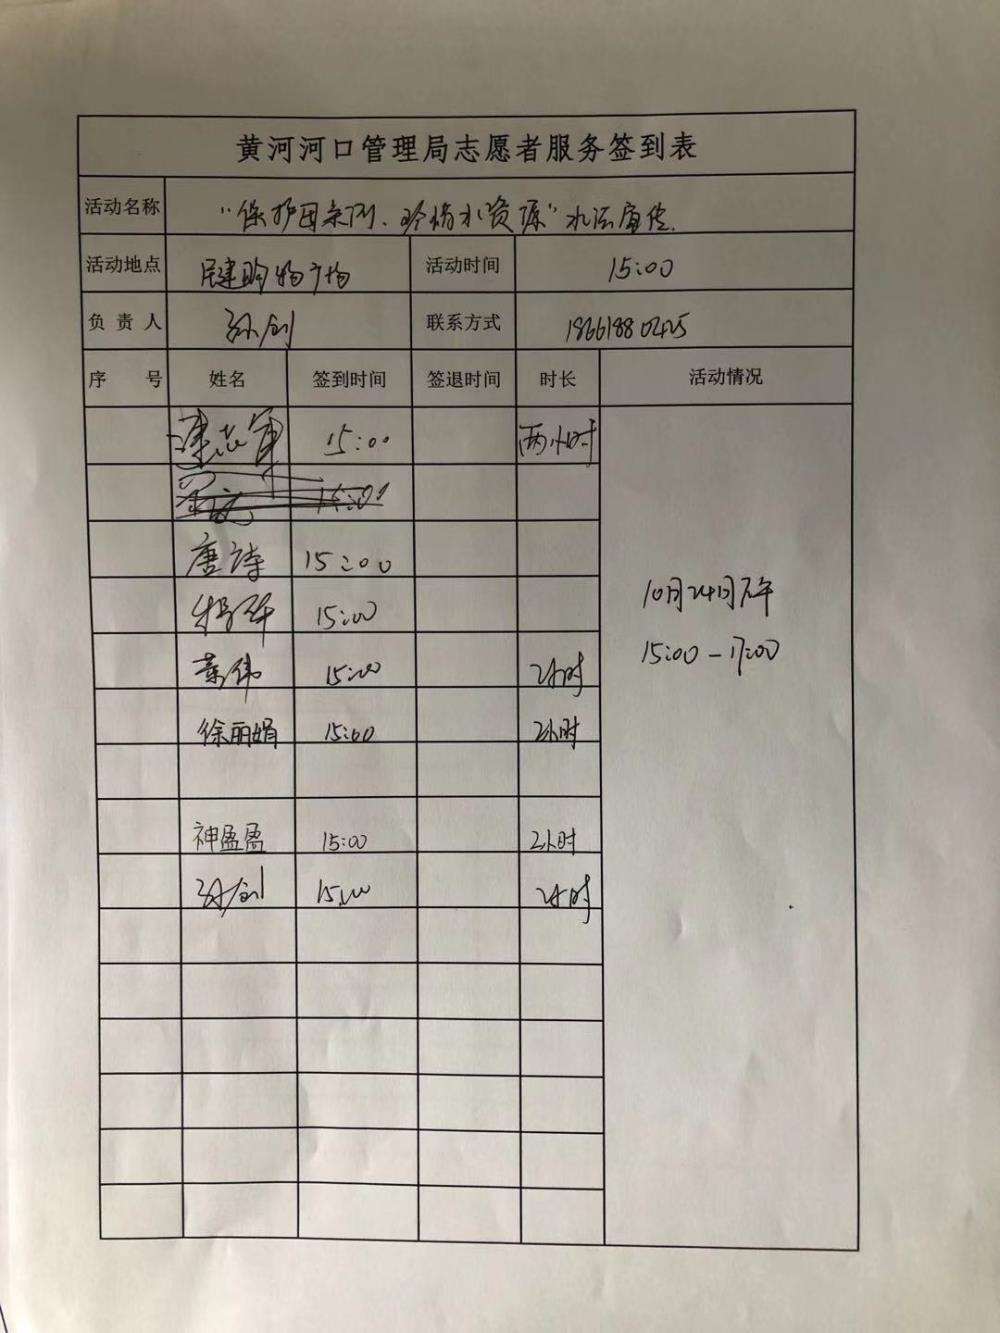 黄河河口管理局志愿者服务签到表
活动名称 "保护母亲河、珍惜水资源"水法宣传
活动地点 民建购物广场 活动时间 15:00
负责人 孙创 联系方式 18661880425
序号 姓名 签到时间 签退时间 时长 活动情况
志军 15:00 两小时
15:00
唐诗 15:00
15:00
10月24日下午
15:00-17:00
伟 15:00 2小时
徐丽娟 15:00 2小时
神盈盈 15:00 2小时
孙创 15:00 2小时